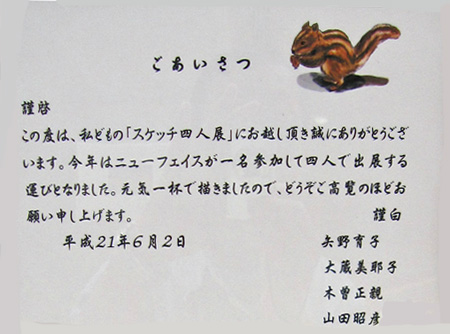 ごあいさつ
謹啓
この度は、私どもの「スケッチ四人展」にお越し頂き誠にありがとうござ
います。今年はニューフェイスが一名参加して四人で出展する
運びとなりました。元気一杯で描きましたので、どうぞご高覧のほどお
願い申し上げます。
謹白
平成21年6月2日
矢野育子
大蔵美耶子
木曽正親
山田昭彦